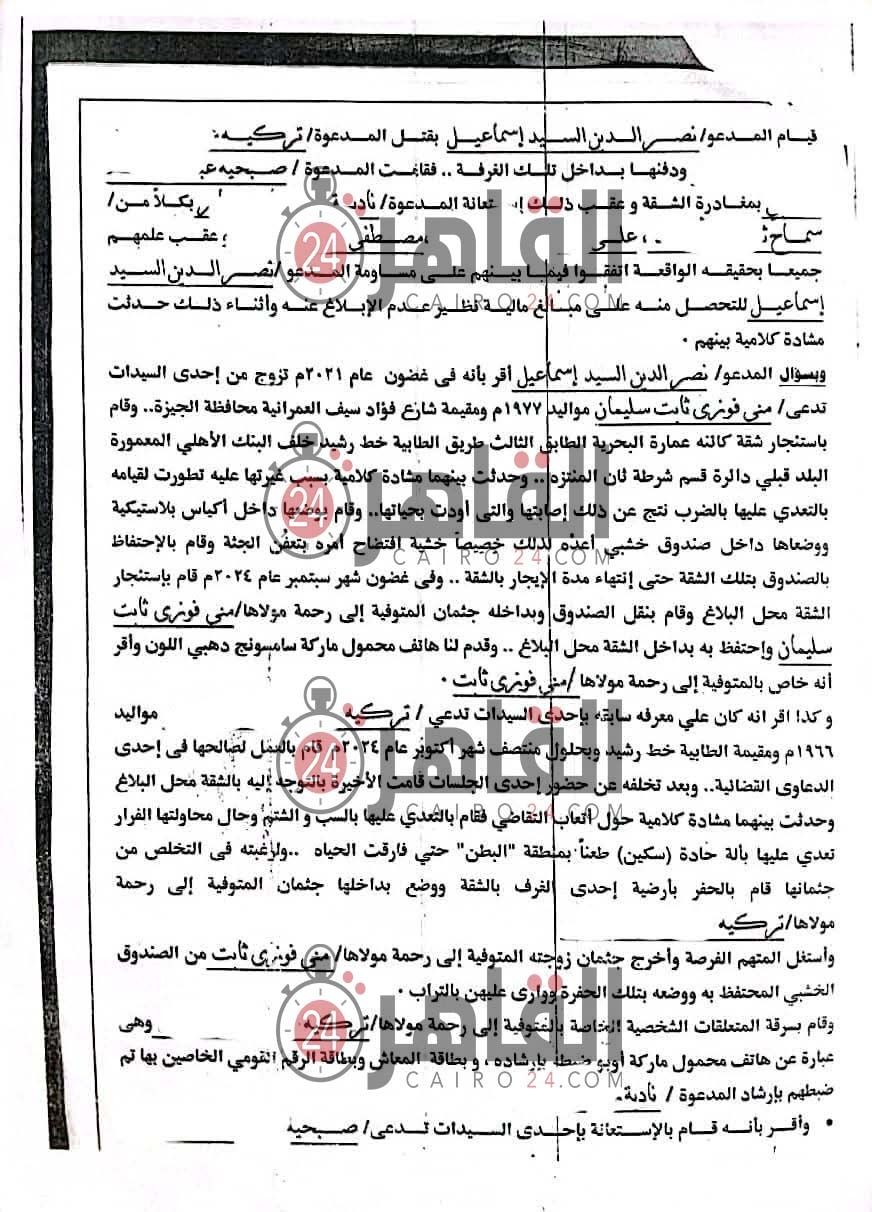 قيام المدعو/ نصر الدين السيد إسماعيل بقتل المدعوة/ تركيه
ودفنها بداخل تلك الغرفة .. فقامت المدعوة / صبحيه
بمغادرة الشقة و عقب ذلك إستعانة المدعوة/ نادية بكلاً من/
سماح ، على ، مصطفى ؛ عقب علمهم
جميعا بحقيقه الواقعة اتفقوا فيما بينهم على مساومة المدعو/ نصر الدين السيد
إسماعيل للتحصل منه على مبالغ مالية نظير عدم الإبلاغ عنه وأثناء ذلك حدثت
مشادة كلامية بينهم .
وبسؤال المدعو/ نصر الدين السيد إسماعيل أقر بأنه فى غضون عام ٢٠٢١م تزوج من إحدى السيدات
تدعى/ منى فوزى ثابت سليمان مواليد ١٩٧٧م ومقيمة شارع فؤاد سيف العمرانية محافظة الجيزة.. وقام
باستنجار شقة كائنه عمارة البحرية الطابق الثالث طريق الطابية خط رشيد خلف البنك الأهلي المعمورة
البلد قبلي دائرة قسم شرطة ثان المنتزه .. وحدثت بينهما مشادة كلامية بسبب غيرتها عليه تطورت لقيامه
بالتعدي عليها بالضرب نتج عن ذلك إصابتها والتى أودت بحياتها.. وقام بوضعها داخل أكياس بلاستيكية
ووضعاها داخل صندوق خشبي أعده لذلك خصيصاً خشية إفتضاح أمره بتعفن الجثة وقام بالإحتفاظ
بالصندوق بتلك الشقة حتى إنتهاء مدة الإيجار بالشقة .. وفى غضون شهر سبتمبر عام ٢٠٢٤م قام بإستنجار
الشقة محل البلاغ وقام بنقل الصندوق وبداخله جثمان المتوفية إلى رحمة مولاها/ منى فوزى ثابت
سليمان وإحتفظ به بداخل الشقة محل البلاغ .. وقدم لنا هاتف محمول ماركة سامسونج دهبي اللون وأقر
أنه خاص بالمتوفية إلى رحمة مولاها /منى فوزى ثابت .
و كذا اقر انه كان علي معرفه سابقه بإحدى السيدات تدعي / تركيه مواليد
١٩٦٦م ومقيمة الطابية خط رشيد وبحلول منتصف شهر أكتوبر عام ٢٠٢٤م قام بالعمل لصالحها فى إحدى
الدعاوى القضائية.. وبعد تخلفه عن حضور إحدى الجلسات قامت الأخيرة بالتوجه إليه بالشقة محل البلاغ
وحدثت بينهما مشادة كلامية حول أتعاب التقاضي فقام بالتعدي عليها بالسب و الشتم وحال محاولتها الفرار
تعدي عليها بألة حادة (سكين) طعناً بمنطقة "البطن" حتي فارقت الحياه ..ولرغبته فى التخلص من
جثمانها قام بالحفر بأرضية إحدى الغرف بالشقة ووضع بداخلها جثمان المتوفية إلى رحمة
مولاها/ تركيه
وأستغل المتهم الفرصة وأخرج جثمان زوجته المتوفية إلى رحمة مولاها/ منى فوزى ثابت من الصندوق
الخشبي المحتفظ به ووضعه بتلك الحفرة ووارى عليهن بالتراب .
وقام بسرقة المتعلقات الشخصية الخاصة بالمتوفية إلى رحمة مولاها/ تركيه وهى
عبارة عن هاتف محمول ماركة أوبو ضبط بإرشاده ، و بطاقة المعاش وبطاقة الرقم القومي الخاصين بها تم
ضبطهم بإرشاد المدعوة / نادية.
• وأقر بأنه قام بالإستعانة بإحدى السيدات تدعى/ صبحية
القاهرة 24
CAIRO 24.COM
القاهرة 24
CAIRO 24.COM
القاهرة 24
CAIRO 24.COM
القاهرة 24
CAIRO 24.COM